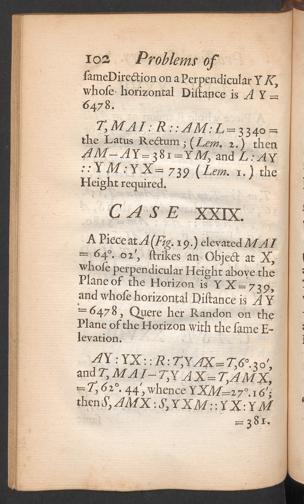 102 Problems of
ſameDirection on a Perpendicular Y K,
whoſe horizontal Diſtance is A Y =
6478.
T, M A I : R :: A M : L = 3340 =
the Latus Rectum; (Lem. 2.) then
A M — A Y = 381 = Y M, and L : A Y
:: Y M : Y X = 739 (Lem. 1.) the
Height required.
C A S E XXIX.
A Piece at A (Fig. 19.) elevated M A I
= 64°. 02′, ſtrikes an Object at X,
whoſe perpendicular Height above the
Plane of the Horizon is Y X = 739,
and whoſe horizontal Diſtance is A Y
= 6478, Quere her Randon on the
Plane of the Horizon with the ſame E-
levation.
A Y : Y X :: R : T, Y A X = T, 6°. 30′,
and T, M A I — T, Y A X = T, A M X,
= T, 62°. 44′, whence Y X M = 27°. 16′;
then S, A M X : S, Y X M :: Y X : Y M
= 381.